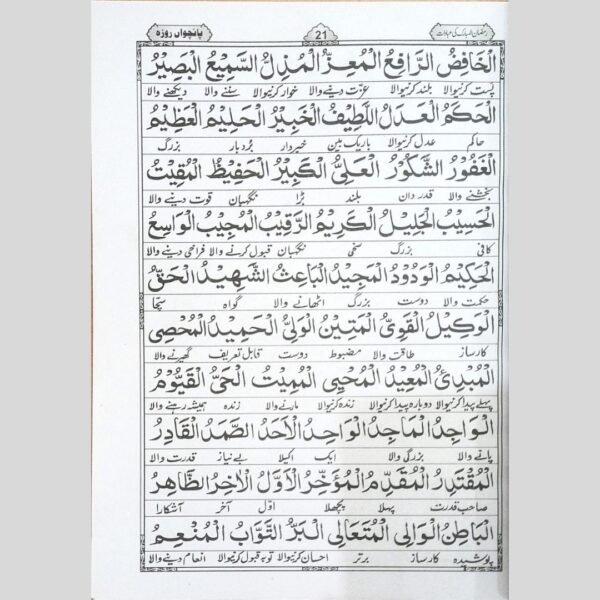 رمضان المبارک کی عبادات 21 پانچواں روزہ
الْخَافِضُ الرَّافِعُ الْمُعِزُّ الْمُذِلُّ السَّمِيْعُ الْبَصِيْرُ
پست کرنیوالا بلند کرنیوالا عزت دینے والا خوار کرنیوالا سننے والا دیکھنے والا
الْحَكَمُ الْعَدْلُ اللَّطِيْفُ الْخَبِيْرُ الْحَلِيْمُ الْعَظِيْمُ
حاکم عدل کرنیوالا باریک بین خبردار بردبار بزرگ
الْغَفُوْرُ الشَّكُوْرُ الْعَلِيُّ الْكَبِيْرُ الْحَفِيْظُ الْمُقِيْتُ
بخشنے والا قدر دان بلند بڑا نگہبان قوت دینے والا
الْحَسِيْبُ الْجَلِيْلُ الْكَرِيْمُ الرَّقِيْبُ الْمُجِيْبُ الْوَاسِعُ
کافی بزرگ سخی نگہبان قبول کرنے والا فراخی دینے والا
الْحَكِيْمُ الْوَدُوْدُ الْمَجِيْدُ الْبَاعِثُ الشَّهِيْدُ الْحَقُّ
حکمت والا دوست بزرگ اٹھانے والا گواہ سچا
الْوَكِيْلُ الْقَوِيُّ الْمَتِيْنُ الْوَلِيُّ الْحَمِيْدُ الْمُحْصِي
کارساز طاقت والا مضبوط دوست قابل تعریف گھیرنے والا
الْمُبْدِئُ الْمُعِيْدُ الْمُحْيِي الْمُمِيْتُ الْحَيُّ الْقَيُّوْمُ
پہلے پیدا کرنیوالا دوبارہ پیدا کرنیوالا زندہ کرنیوالا مارنے والا زندہ ہمیشہ رہنے والا
الْوَاجِدُ الْمَاجِدُ الْوَاحِدُ الْاَحَدُ الصَّمَدُ الْقَادِرُ
پانے والا بزرگی والا ایک اکیلا بے نیاز قدرت والا
الْمُقْتَدِرُ الْمُقَدِّمُ الْمُؤَخِّرُ الْاَوَّلُ الْاٰخِرُ الظَّاهِرُ
صاحب قدرت پہلا پچھلا اوّل آخر آشکارا
الْبَاطِنُ الْوَالِي الْمُتَعَالِي الْبَرُّ التَّوَّابُ الْمُنْعِمُ
پوشیدہ کارساز برتر احسان کرنیوالا توبہ قبول کرنیوالا انعام دینے والا